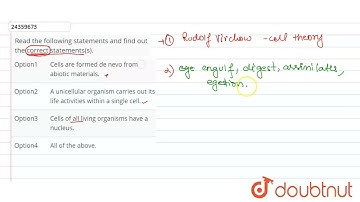 24359673
Read the following statements and find out
the correct statements(s).
Option1 Cells are formed de nevo from
abiotic materials.
Option2 A unicellular organism carries out its
life activities within a single cell.
Option3 Cells of all living organisms have a
nucleus.
Option4 All of the above.
→① Rudolf Virchow - cell theory
2) ege engulf, digest, assimilates,
egetion.
doubtnut